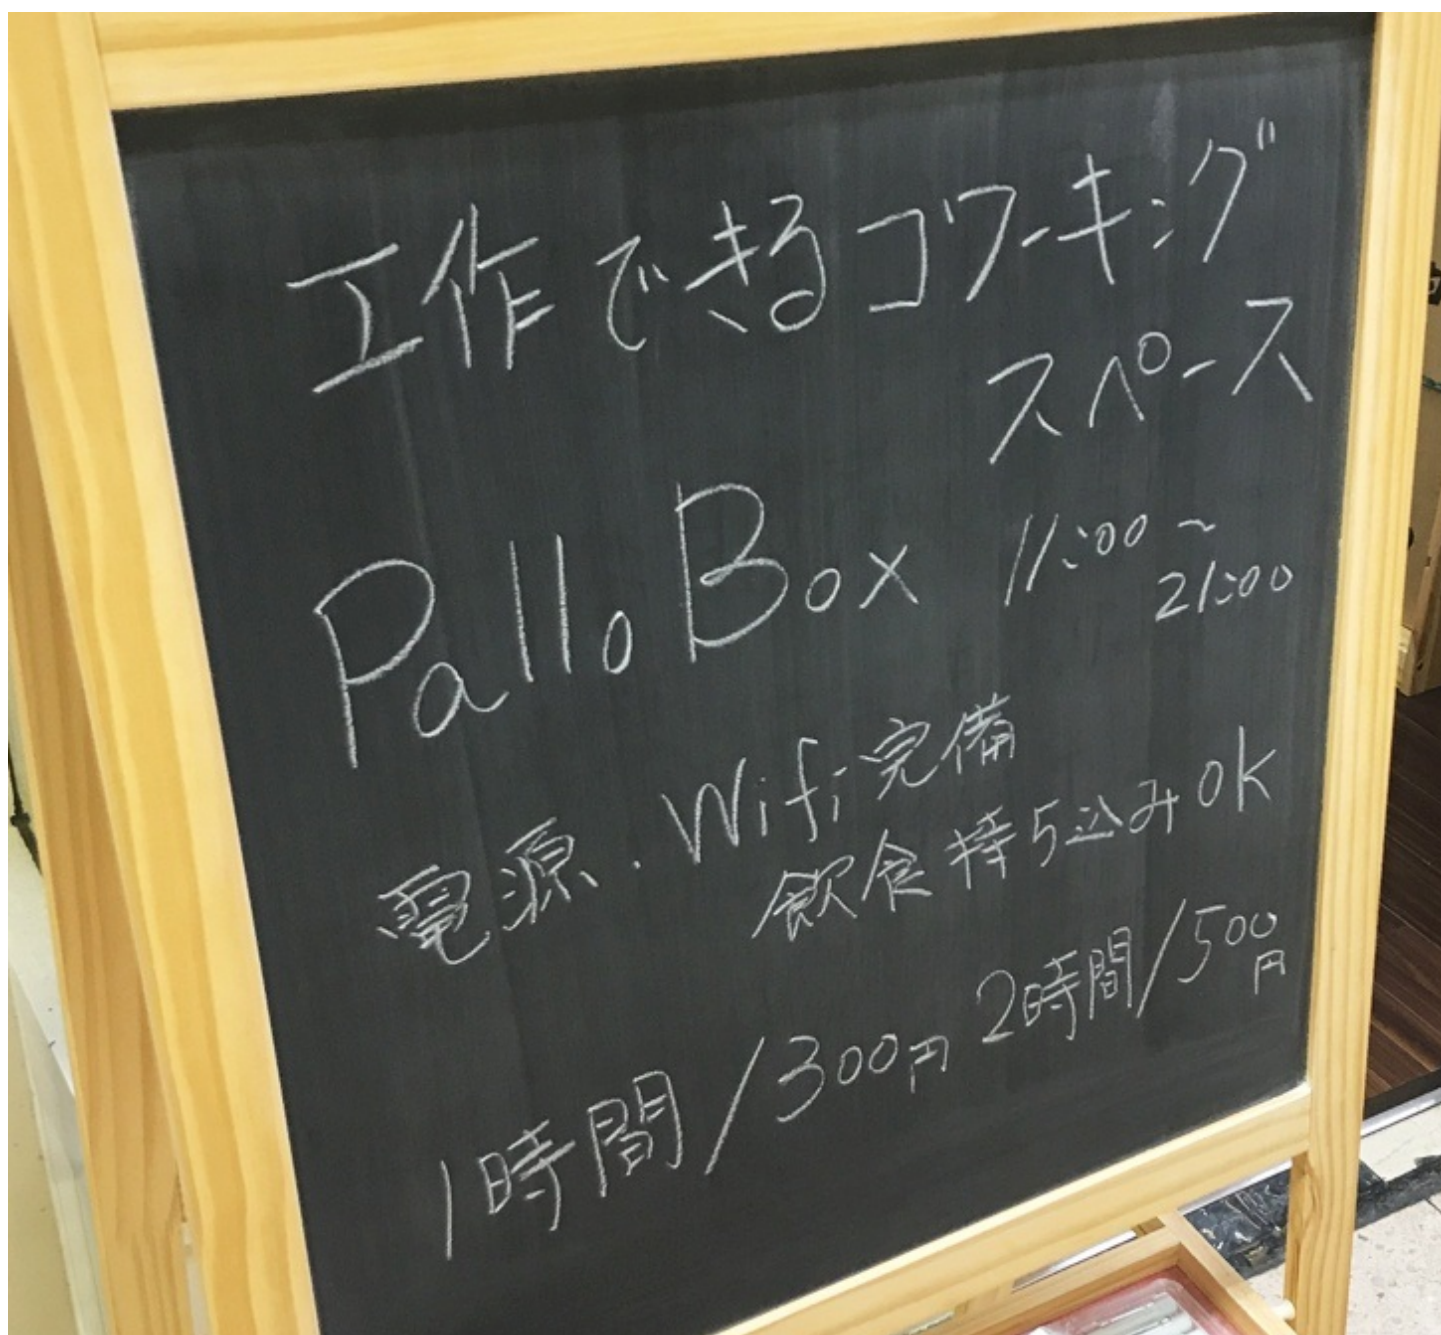 工作できるコワーキング
スペース
Pallo Box 11:00~
21:00
電源・Wifi完備
飲食持ち込みOK
1時間/300円 2時間/500
円